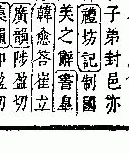 子弟封邑亦
禮坊記制國
美之辭書息
韓愈答崔立
廣韻陟盈切